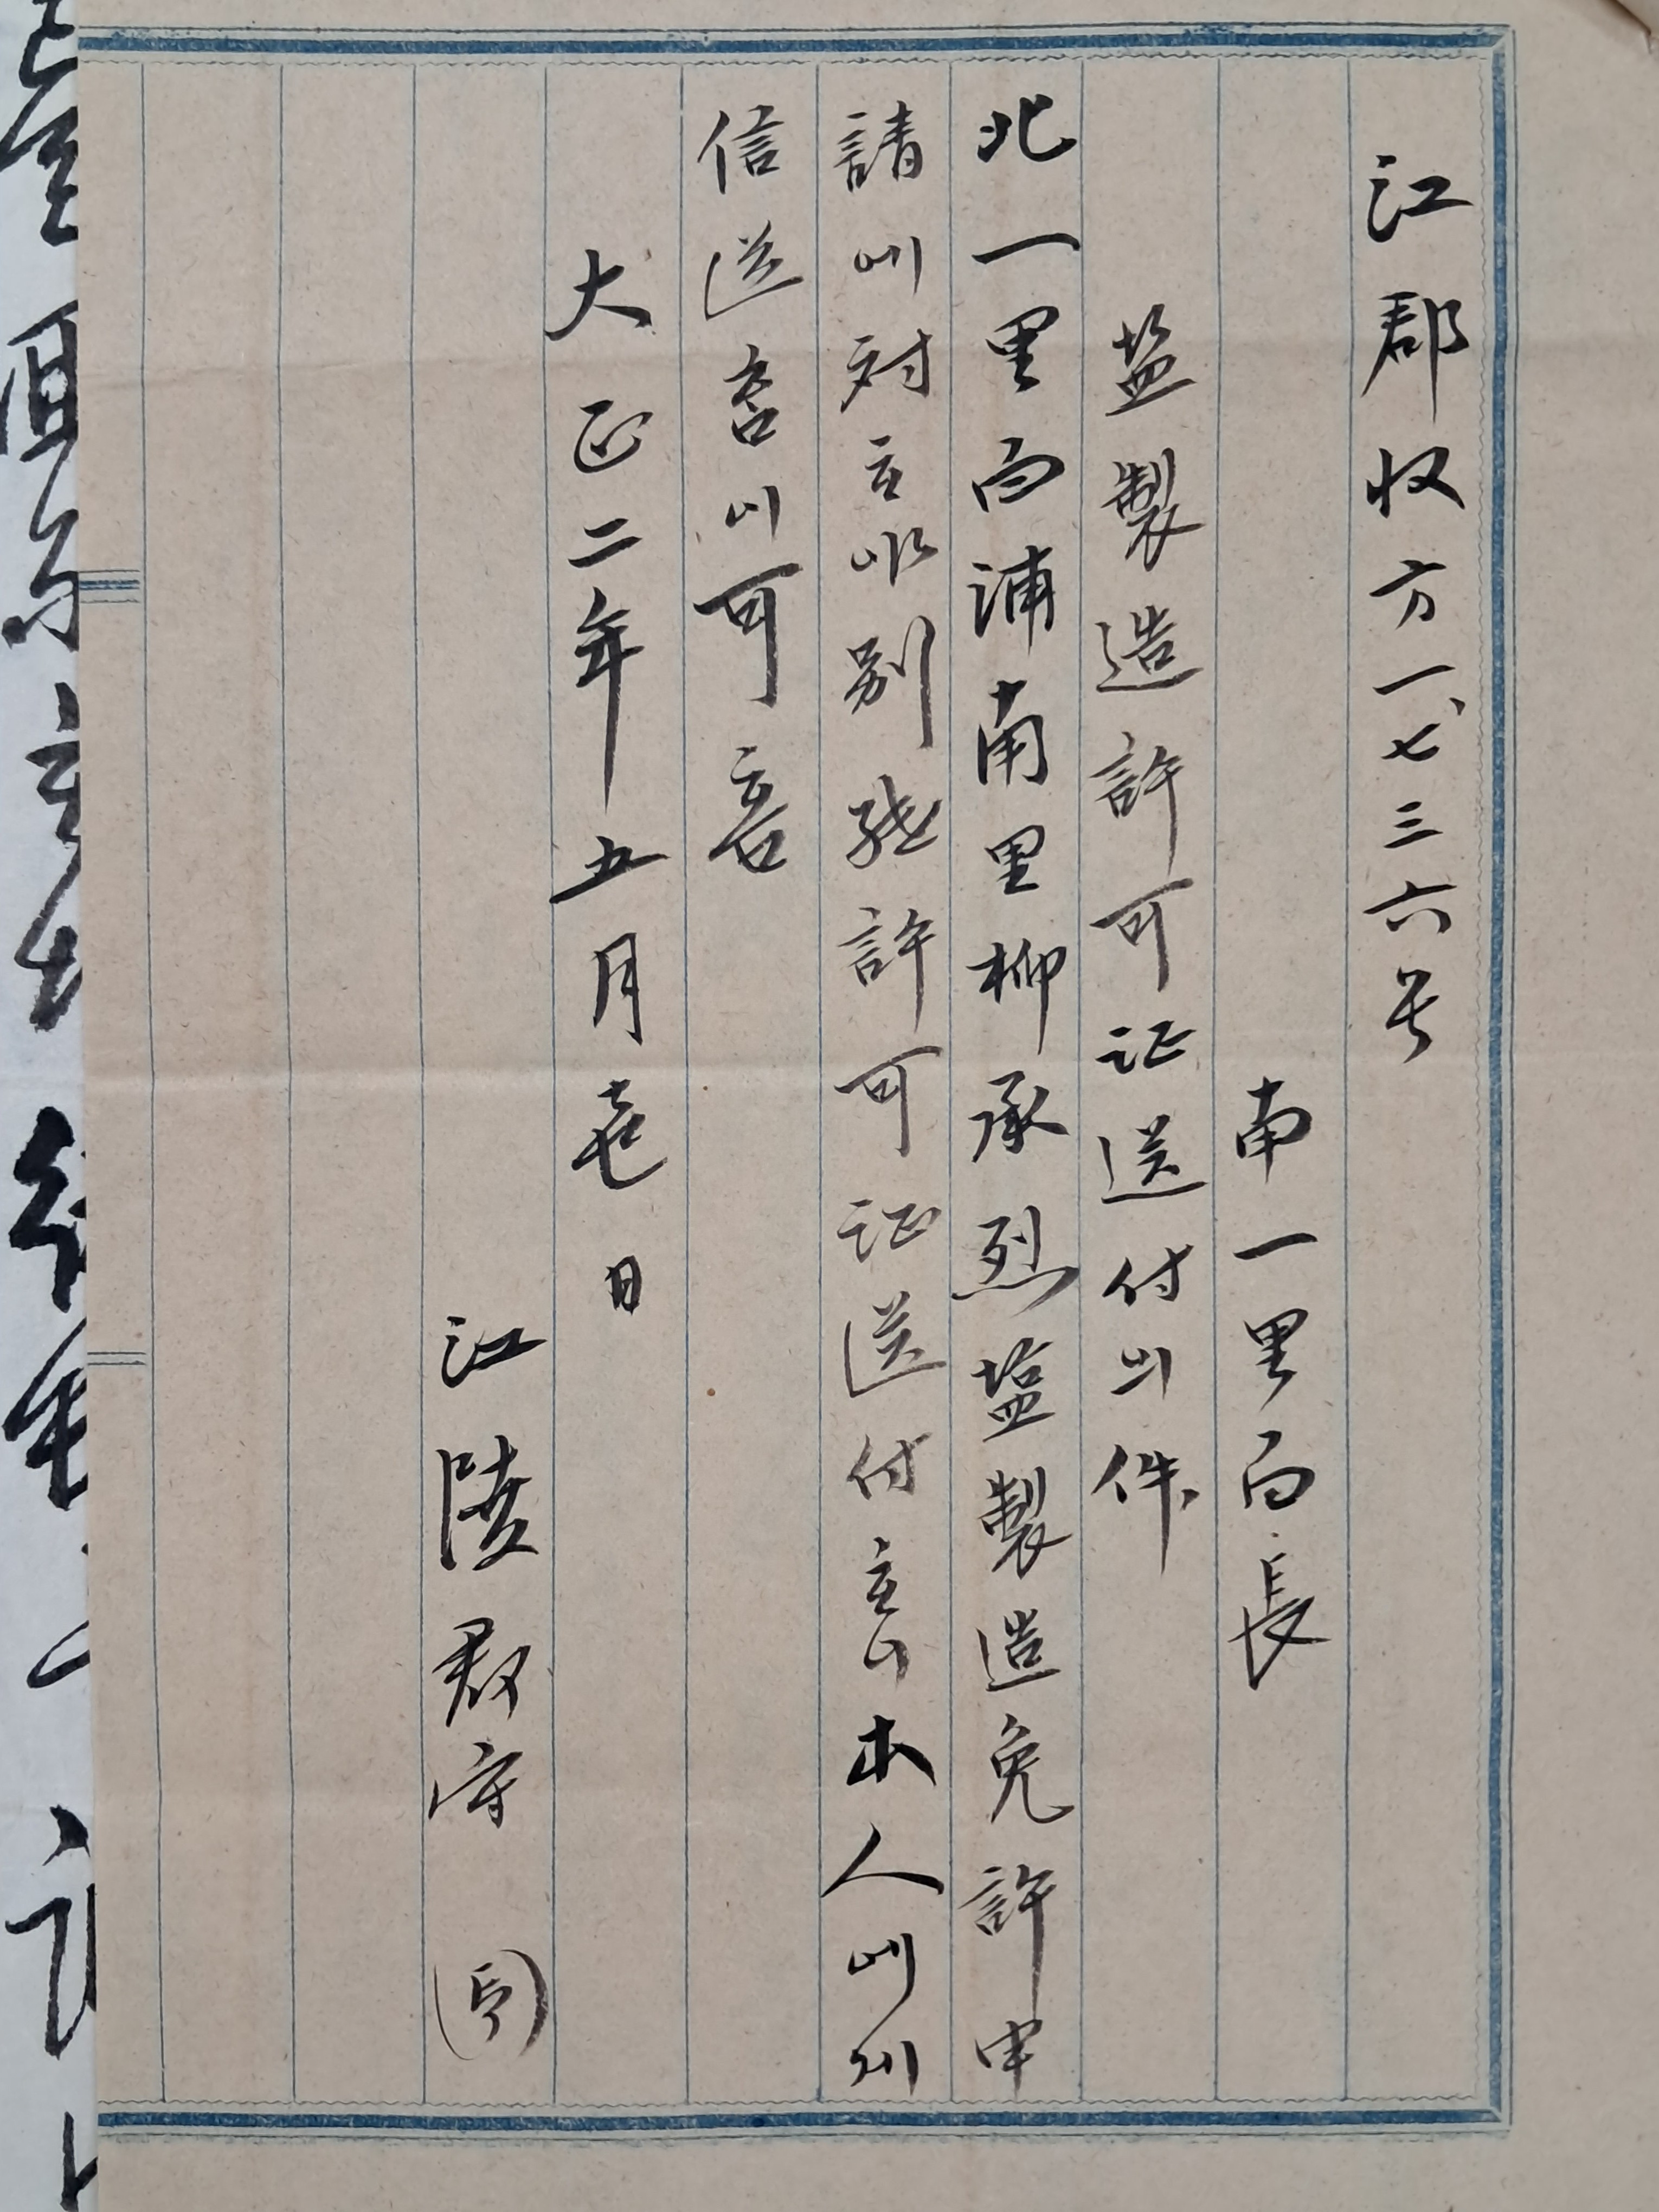 江郡収方一、七三六号
南一里面長
塩製造許可証送付의件
北一里面浦南里柳承烈塩製造免許申
請에対ᄒᆞ야別紙許可証送付ᄒᆞ니本人에게
信送홈이可홈
大正二年五月壱日
江陵郡守 印